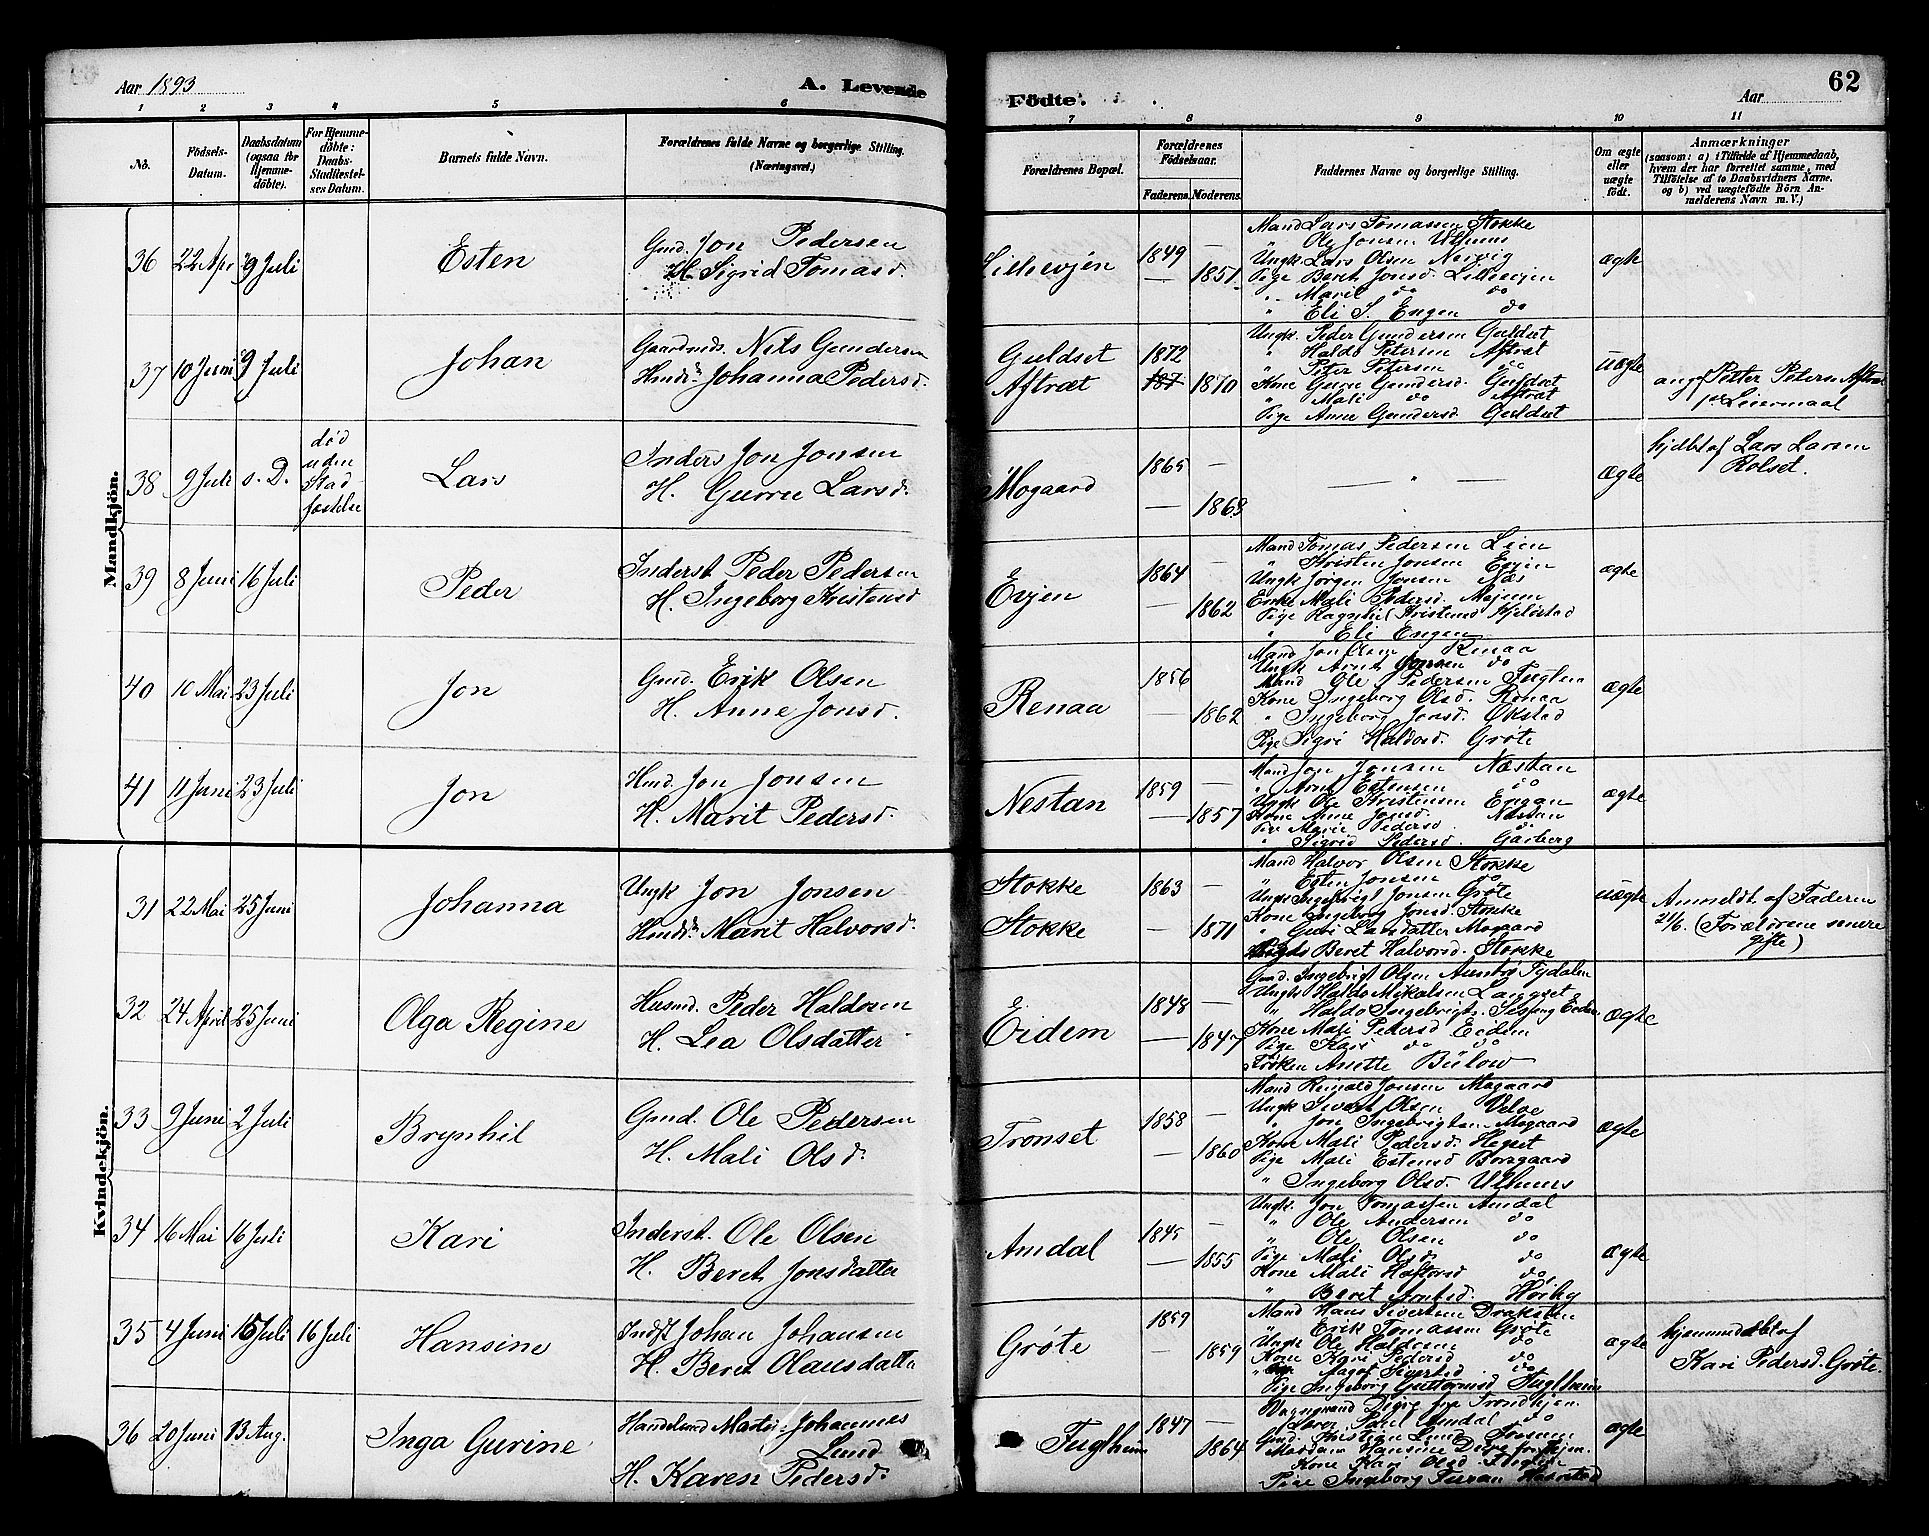 Aar 1893
A. Levende
Födte.
Aar
62
1 2 3 4 5 6 7 8 9 10 11
No.
Födsels-
Datum.
Daabsdatum
(ogsaa for
Hjemme-
döbte).
For Hjemme-
döbte:
Daabs-
Stadfæstel-
ses Datum.
Barnets fulde Navn.
Forældrenes fulde Navne og borgerlige Stilling.
(Næringsvei.)
Forældrenes Bopæl.
Forældrenes
Födselsaar.
Faderens.
Moderens.
Faddernes Navne og borgerlige Stilling.
Om ægte
eller
uægte
födt.
Anmærkninger
(saasom: a) i Tilfælde af Hjemmedaab,
hvem der har forrettet samme, med
Tilföielse af to Daabsvidners Navne,
og b) ved uægtefödte Börn An-
melderens Navn m. V.)
Mandkjön.
36 22 Apr 9 Juli Esten
Gmd. Jon Pedersen
H. Sigrid Tomasd.
Lillevjen 1849 —
— 1851
Mand Lars Tomassen Stokke
" Ole Jonsen Ulhuus
Ungk. Lars Olsen Nervig
Pige Beret Jonsd. Lillevjen
" Marit do do
" Eli S. Engen do
ægte
37 10 Juni 9 Juli Johan
Gaardmds. Nils Gundersen
Hmds. Johanna Pedersd.
Guldset 1872
Aftræt 187 1870
Ungk. Peder Gundersen Guldset
" Haldo Petersen Aftræt
" Peter Petersen do
Kone Gurue Gundersd. Guldset
" Mali do Aftræt
Pige Anne Gundersd. Guldset
uægte
ang. Petter Petersen Aftræt
for Leiermaal
38 9 Juli s. D.
død
uden
Stad-
fæstelse
Lars
Inders Jon Jonsen
H. Gurue Larsd.
Mogaard 1865 —
— 1868
— " —
ægte
hjdbt af Lars Larsen
Rolset.
39 8 Juni 16 Juli Peder
Inderst Peder Pedersen
H. Ingeborg Kristensd
Evjen 1864 —
— 1862
Mand Tomas Pedersen Lien
" Kristen Jonsen Evjen
Ungk Jørgen Jonsen Næs
Enke Mali Pedersd. Mojeen
Pige Ragnhil Kristensd Kjelstad
" Eli Engen
ægte
40 10 Mai 23 Juli Jon
Gmd. Erik Olsen
H. Anne Jonsd.
Renaa 1856 —
— 1862
Mand Jon Olsen Renaa
Ungk Arnt Jonsen do
Mand Ole Pedersen Fuglem
Kone Ingeborg Olsd. Renaa
" Ingeborg Jonsd. Evistad
Pige Sigri Haldosd. Grøte
ægte
41 11 Juni 23 Juli Jon
Hmd. Jon Jonsen
H. Marit Pedersd.
Nestan 1859 —
— 1857
Mand Jon Jonsen Næstan
" Arnt Estensen do
Ungk Ole Kristensen Engan
Kone Anne Jonsd. Næstan
Pige Marie Pedersd do
" Sigrid Pedersd. Garberg
ægte
Kvindekjön.
31 22 Mai 25 Juni Johanna
Ungk Jon Jonsen
Hmds. Marit Halvorsd.
Stokke 1863 —
Stokke 1871
Mand Halvor Olsen Stokke
" Esten Jonsen do
Ungk Ingebrigt Jonsen Grøte
Kone Ingeborg Jonsd. Stokke
" Guri Larsdatter Mogaard
Beret Halvorsd. Stokke
uægte
Anmeldt af Faderen
21/6. (Forældrene senere
gifte)
32 24 April 25 Juni Olga Regine
Husmd. Peder Haldosen
H. Lea Olsdatter
Eidem 1848 —
— 1847
Gmd. Ingebrigt Olsen Aunbo Tydalen
Ungk Haldo Mikalsen Langset
" Haldo Ingebrigts. Eidem
Kone Mali Pedersd Eidem
Pige Kari do do
Frøken Anette Bülow
ægte
33 9 Juni 2 Juli Brynhil
Gmd. Ole Pedersen
H. Mali Olsd.
Tronset 1858 —
— 1860
Mand Reinald Jonsen Mogaard
Ungk Sivert Olsen Velve
" Jon Ingebrigtsen Mogaard
Kone Mali Pedersd. Hegset
Pige Mali Estensd Borsgaard
" Ingeborg Olsd. Ulhuus
ægte
34 16 Mai 16 Juli Kari
Inderst. Ole Olsen
H. Beret Jonsdatter
Amdal 1845 —
— 1855
Ungk. Jon Tomassen Amdal
" Ole Andersen do
" Ole Olsen do
Pige Mali Olsd do
Kone Mali Haftorsd do
" Beret Arntsd. Hørby
ægte
35 4 Juni 16 Juli 16 Juli Hansine
Indst Johan Johansen
H. Beret Olausdatter
Grøte 1859 —
— 1859
Mand Hans Sivertsen Drakstén
" Erik Tomassen Grøte
Ungk Ole Haldosen do
Kone Kari Pedersd do
" Maret Sivertsd do
Pige Ingeborg Guttormsd Fuglheim
ægte
hjemmedøbt af
Kari Pedersd. Grøte.
36 20 Juni 13 Aug. Inga Gurine
Handelsmd Martin Johannes
Lund
H. Karen Pedersd.
Fuglheim 1847 —
— 1864
Vognmand Digre fra Trondhjem
Paul Amdal do
Gmd. Kristian Lund
Madam Hansine Digre fra Thjem.
Kone Kari Olsd. Fuglem
Pige Ingeborg
ægte